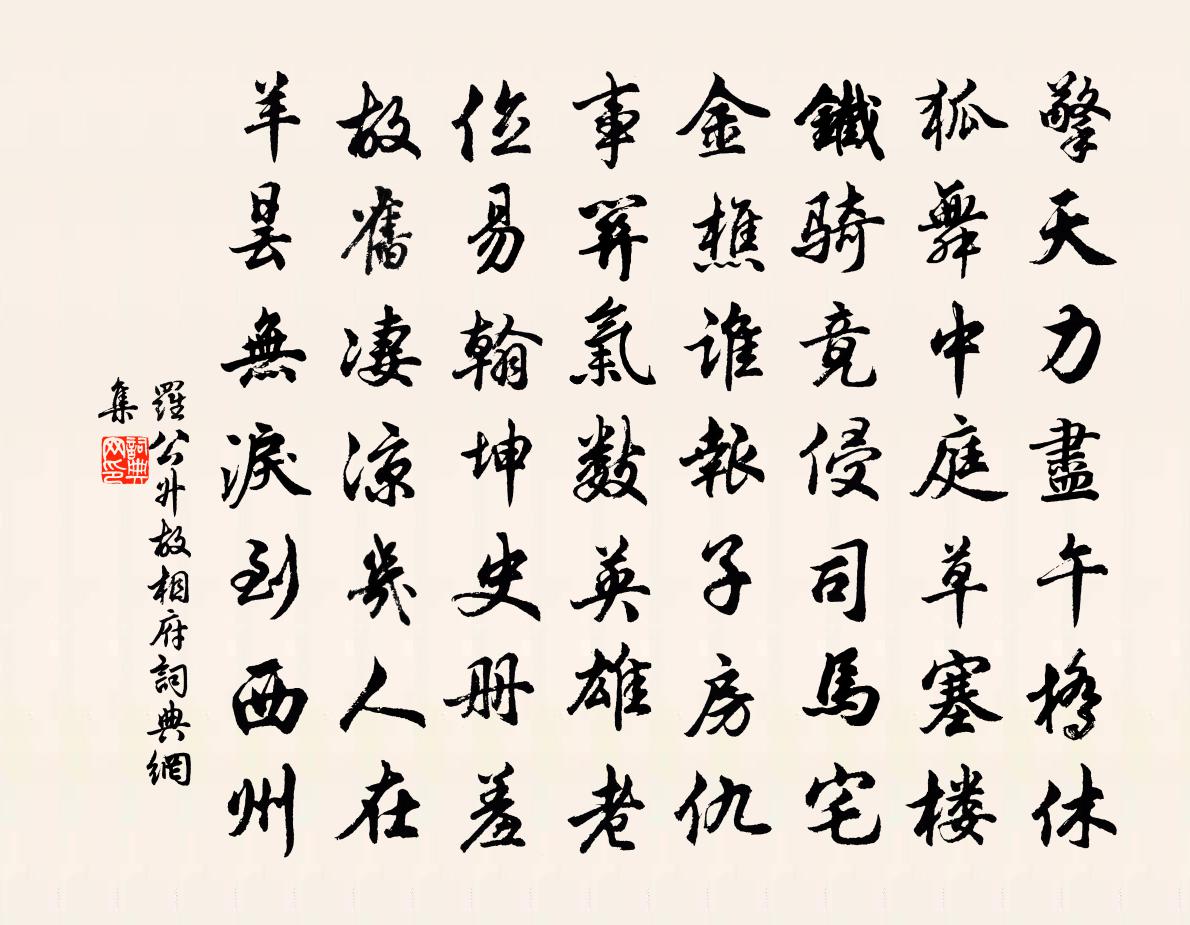 擎天力盡午橋休
狐舞中庭草塞楼
鐵騎竟侵司馬宅
金樵誰報子房仇
事關氣數英雄老
位易翰坤史册羞
故舊凄涼幾人在
羊曇無淚到西州
羅公升故相府詞典網
集
詞典網印